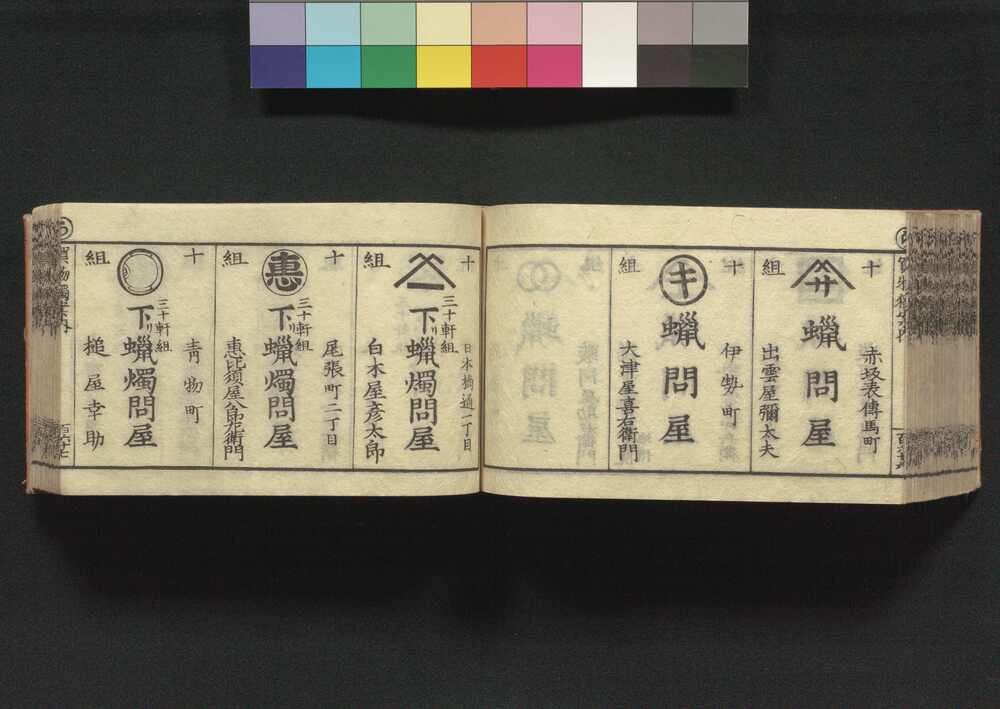 十組
赤坂表傳馬町
蠟問屋
出雲屋彌太夫
十組
伊勢町
キ
蠟問屋
大津屋喜右衛門
十組
日本橋通一丁目
三十軒組
下リ蠟燭問屋
白木屋彦太郎
十組
尾張町二丁目
惠
三十軒組
下リ蠟燭問屋
惠比須屋八郎左衛門
十組
青物町
三十軒組
下リ蠟燭問屋
槌屋幸助